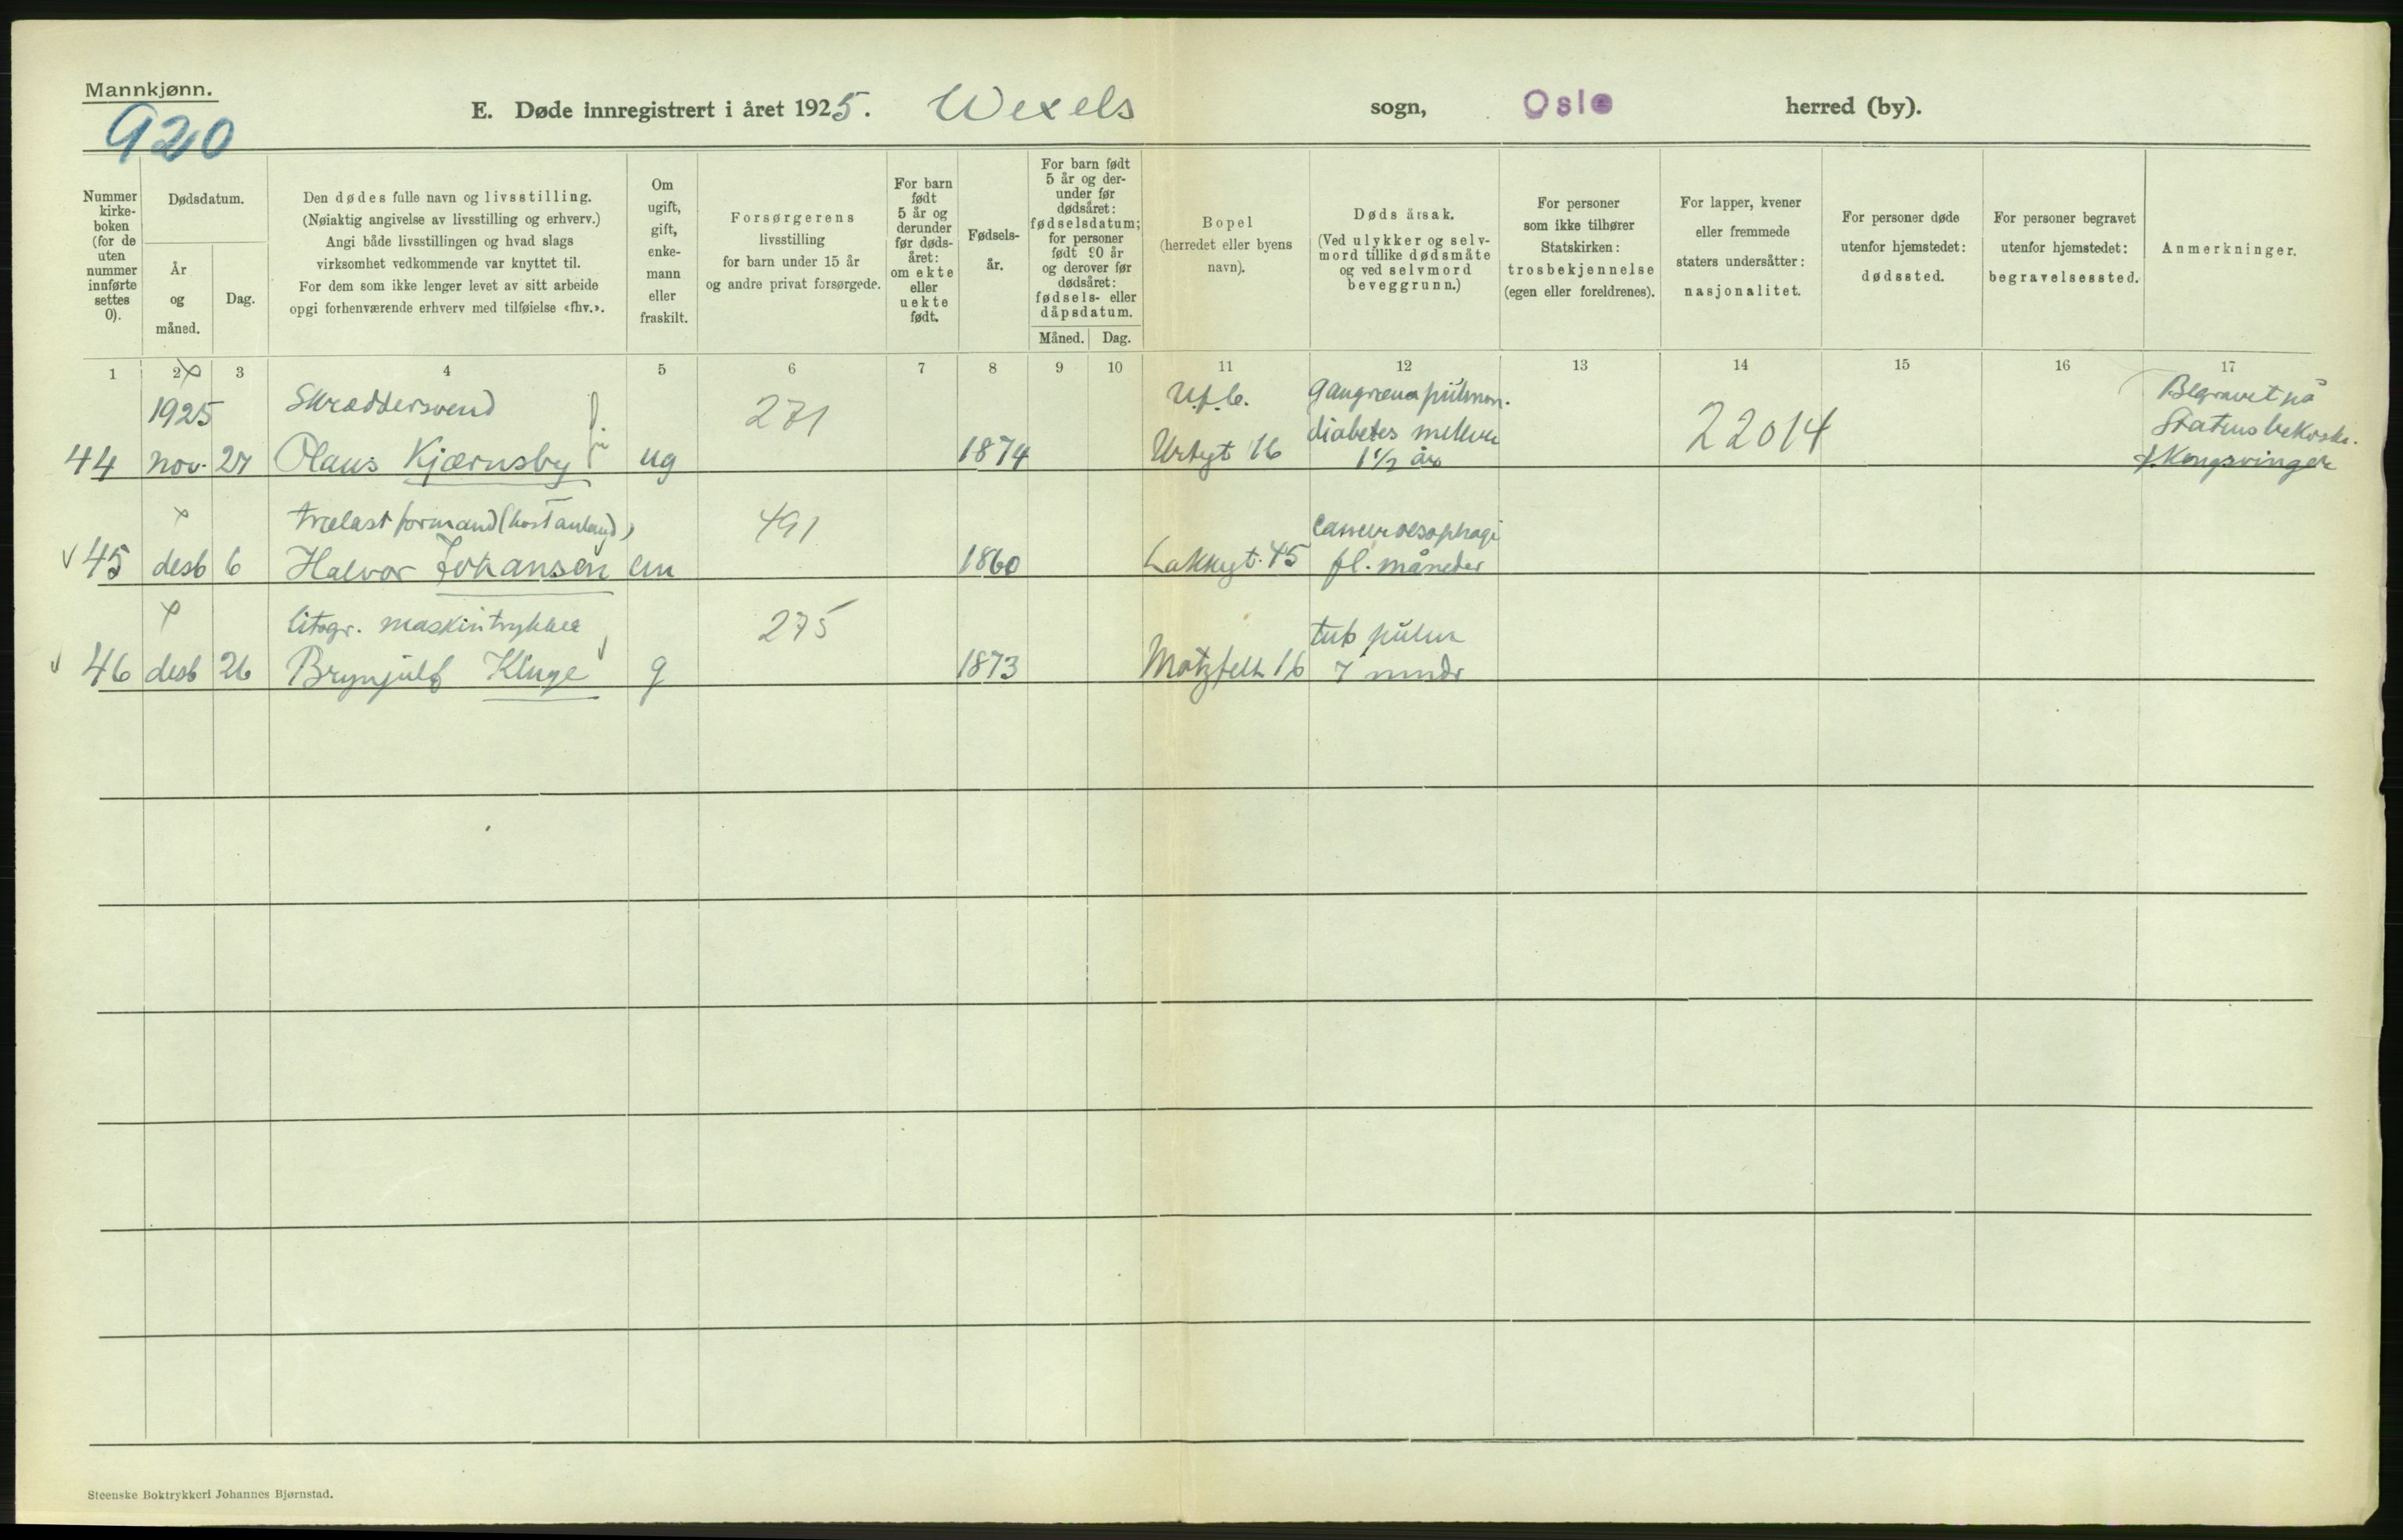 Mannkjønn.
920
E. Døde innregistrert i året 1925. Wexels sogn, Oslo herred (by).
Nummer kirke- boken (for de uten nummer innførte settes 0).
Dødsdatum.
År og måned.
Dag.
Den dødes fulle navn og livsstilling.
(Nøiaktig angivelse av livsstilling og erhverv.)
Angi både livsstillingen og hvad slags
virksomhet vedkommende var knyttet til.
For dem som ikke lenger levet av sitt arbeide
opgi forhenværende erhverv med tilføielse «fhv.».
Om ugift, gift, enke- mann eller fraskilt.
Forsørgerens
livsstilling
for barn under 15 år
og andre privat forsørgede.
For barn født 5 år og derunder før døds- året: om ekte eller uekte født.
Fødsels- år.
For barn født 5 år og der- under før dødsåret: fødselsdatum; for personer født 90 år og derover før dødsåret: fødsels- eller dåpsdatum.
Måned. Dag.
Bopel
(herredet eller byens
navn).
Dødsårsak.
(Ved ulykker og selv-
mord tillike dødsmåte
og ved selvmord
beveggrunn.)
For personer
som ikke tilhører
Statskirken:
trosbekjennelse
(egen eller foreldrenes).
For lapper, kvener
eller fremmede
staters undersåtter:
nasjonalitet.
For personer døde
utenfor hjemstedet:
dødssted.
For personer begravet
utenfor hjemstedet:
begravelsessted.
Anmerkninger.
1 2 3 4 5 6 7 8 9 10 11 12 13 14 15 16 17
1925 Skræddersvend 271 U.f.b. gangræna pulmon. 22014 Begravet på
diabetes mellitus Statens bekostn.
44 nov. 27 Olaus Kjærnsby ug 1874 Urtegt 16 1 1/2 år Kongsvinger
trælastformand 491 cancer oesophagi
45 desb 6 Halvor Johansen em 1860 Lakkegt. 45 fl. måneder
litogr. maskintrykker 275 tub pulm
46 desb 26 Brynjulf Kluge g 1873 Motzfeldt 16 7 mndr
Steenske Boktrykkeri Johannes Bjørnstad.